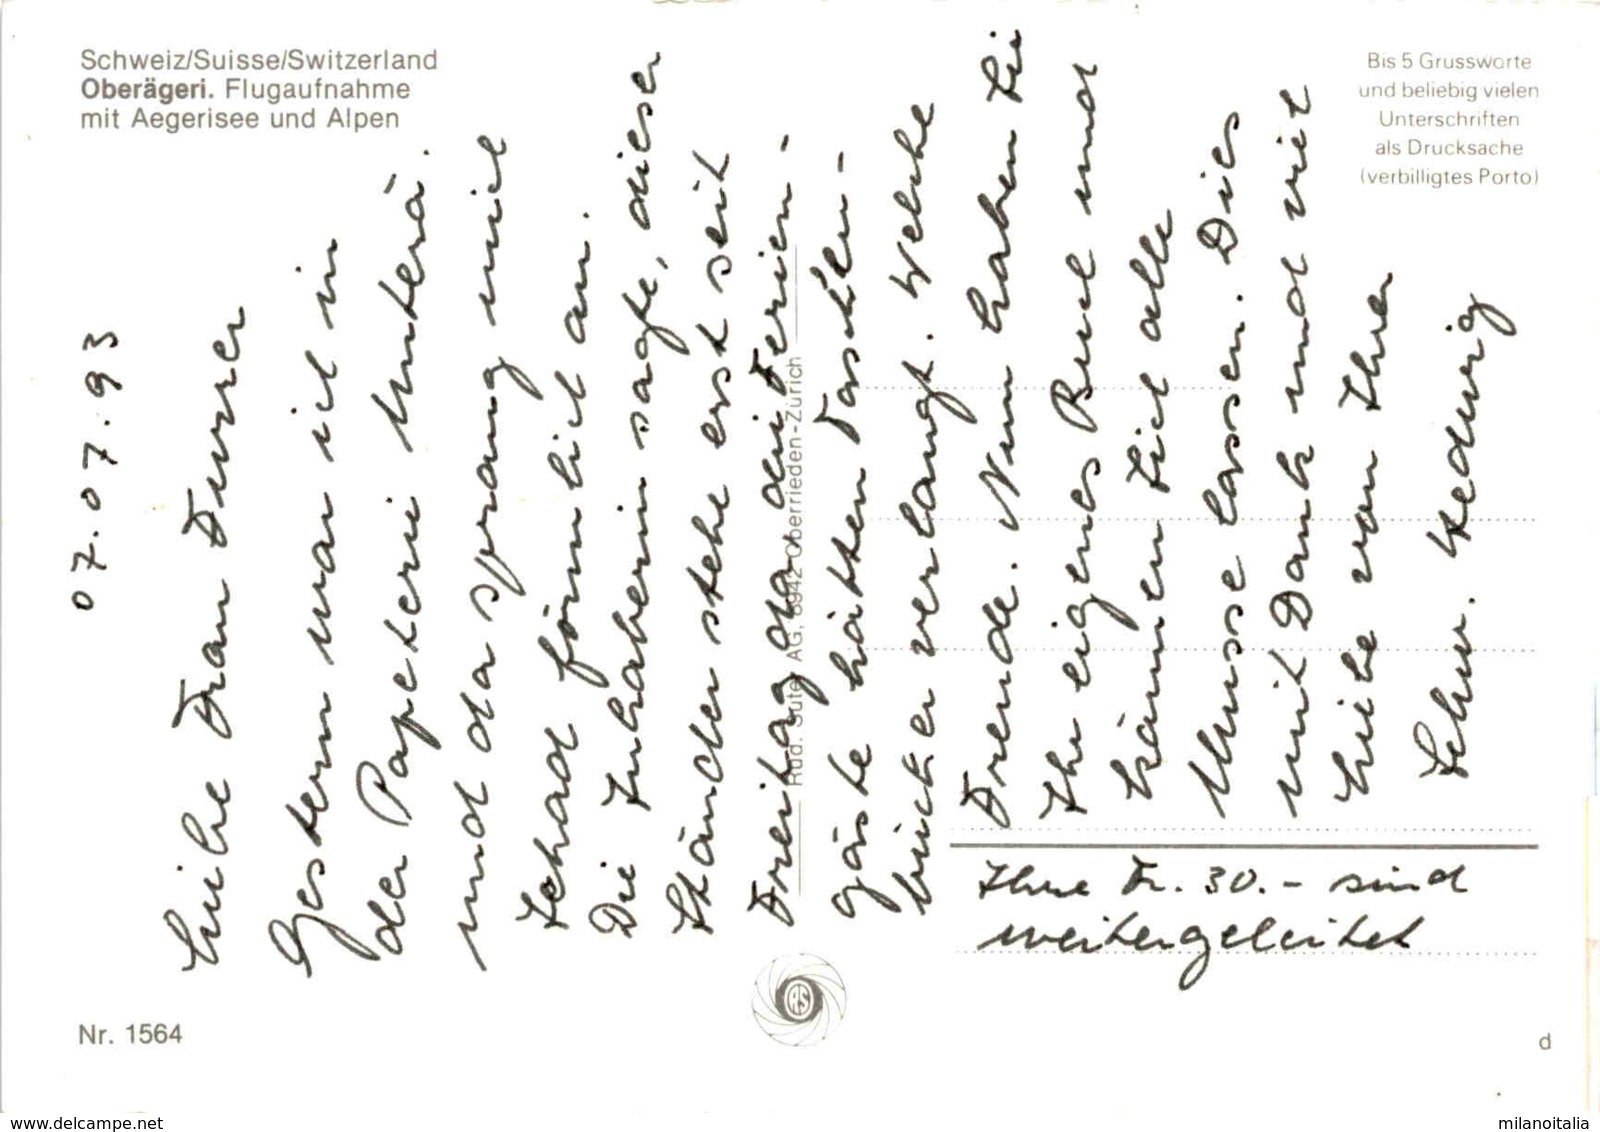 Schweiz/Suisse/Switzerland
Oberägeri. Flugaufnahme
mit Aegerisee und Alpen
Bis 5 Grussworte
und beliebig vielen
Unterschriften
als Drucksache
(verbilligtes Porto)
07.07.93
Liebe Frau Furrer
Gestern war ich in
der Papeterie Unterä.
und da sprang mich
förmlich an.
Die Inhaberin sagte, dieser
Ständer stehe erst seit
Freitag da, die Ferien-
gäste hätten Fasten-
bücher verlangt. Welche
Freude. Nun haben Sie
Ihr eigenes Buch und
können sich alle
Musse lassen. Dies
mit Dank und viel
Liebe von Ihrer
Schw. Hedwig
Ihre Fr. 30.- sind
weitergeleitet
Rud. Suter AG, 8942 Oberrieden-Zürich
RS
Nr. 1564
d
www.delcampe.net
milanoitalia